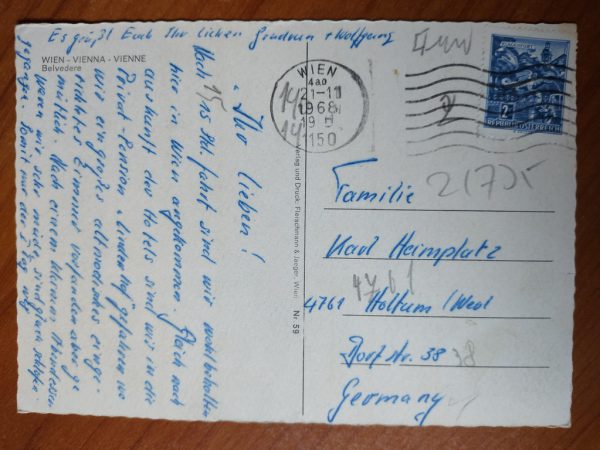 Es grüßt Euch Ihr lieben Gudrun + Wolfgang
WIEN - VIENNA - VIENNE
Belvedere
Ihr lieben!
Nach 15 Std. fahrt sind wir wohlbehalten
hier in Wien angekommen. Gleich nach
auskunft des Hotels sind wir in die
Privat-Pension "Lindenhof" gefahren wo
wir ein großes altmodisches einge-
richtetes Zimmer vorfanden aber ge
mütlich. Nach einem kleinen Abendessen
waren wir sehr müde, sind gleich schlafen
gegangen. Somit war der Tag weg
Verlag und Druck: Fleischmann & Jaeger, Wien
Nr. 59
WIEN
21-11
1968
19
150
2
REPUBLIK ÖSTERREICH
2
21735
Familie
Karl Heimplatz
4761
4761 Holtum/Werl
Dorf Nr. 38
38
Germany